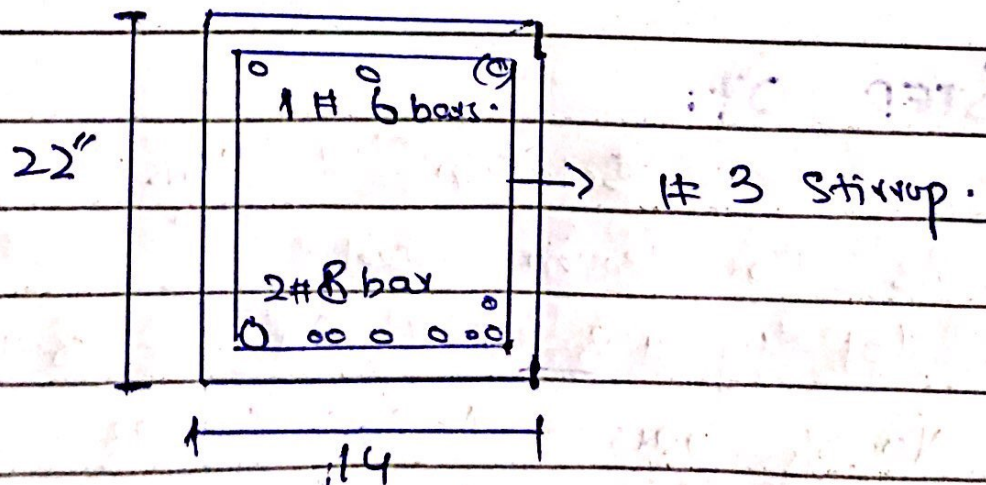 1 # 6 bars.
22"
# 3 Stirrup.
2#8 bar
14